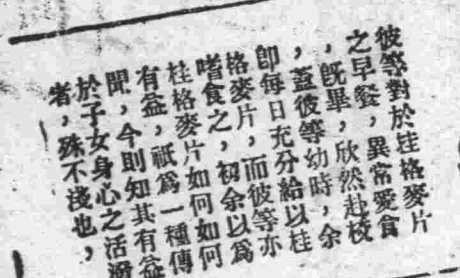 彼等對於桂格麥片
之早餐，異常愛食
，旣畢，欣然赴校
，蓋彼等幼時，余
卽每日充分給以桂
格麥片，而彼等亦
嗜食之，初余以爲
桂格麥片如何如何
有益，祇爲一種傳
聞，今則知其有益
於子女身心之活潑
者，殊不淺也，